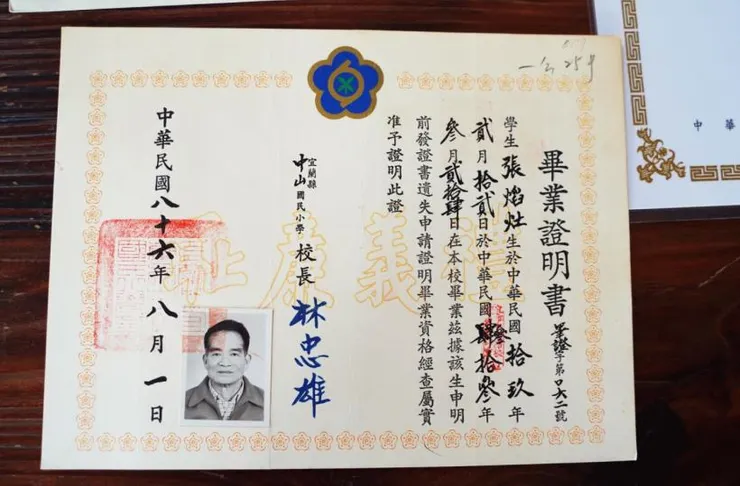 畢業證明書 畢證字第〇六二號
學生張焰灶生於中華民國拾玖年
貳月拾貳日於中華民國肆拾叄年
叄月貳拾肆日在本校畢業茲據該生申明
前發證書遺失申請證明畢業資格經查屬實
准予證明此證
宜蘭縣中山國民小學 校長 林忠雄
中華民國八十六年八月一日
禮義廉恥
中華